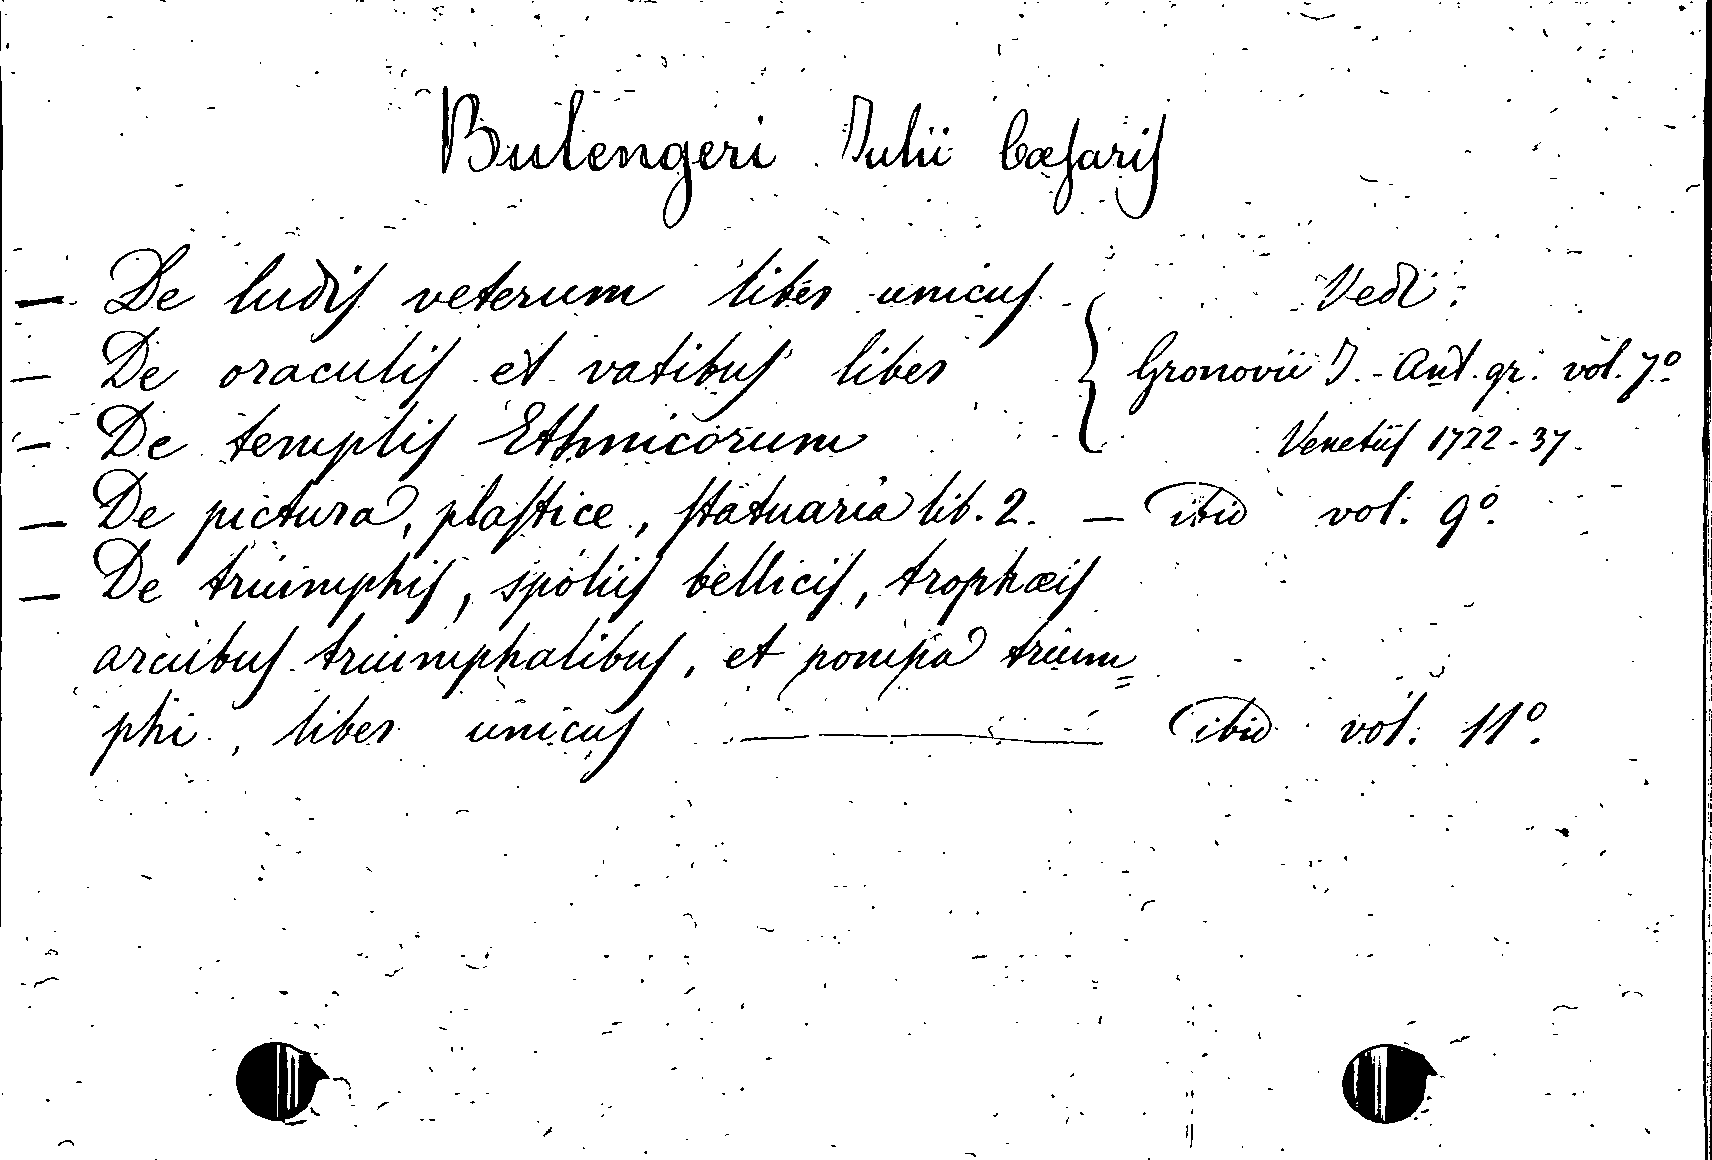 Bulengeri Julii Cæsaris
— De ludis veterum liber unicus Vedi:
— De oraculis et vatibus liber { Gronovii J. Ant. gr. vol. 7º
— De templis Ethnicorum Venetiis 1732-37.
— De pictura, plastice, statuaria lib. 2. — ibid vol. 9º.
— De triumphis, spoliis bellicis, trophæis
arcubus triumphalibus, et pompa trium=
phi, liber unicus — ibid vol. 11º.